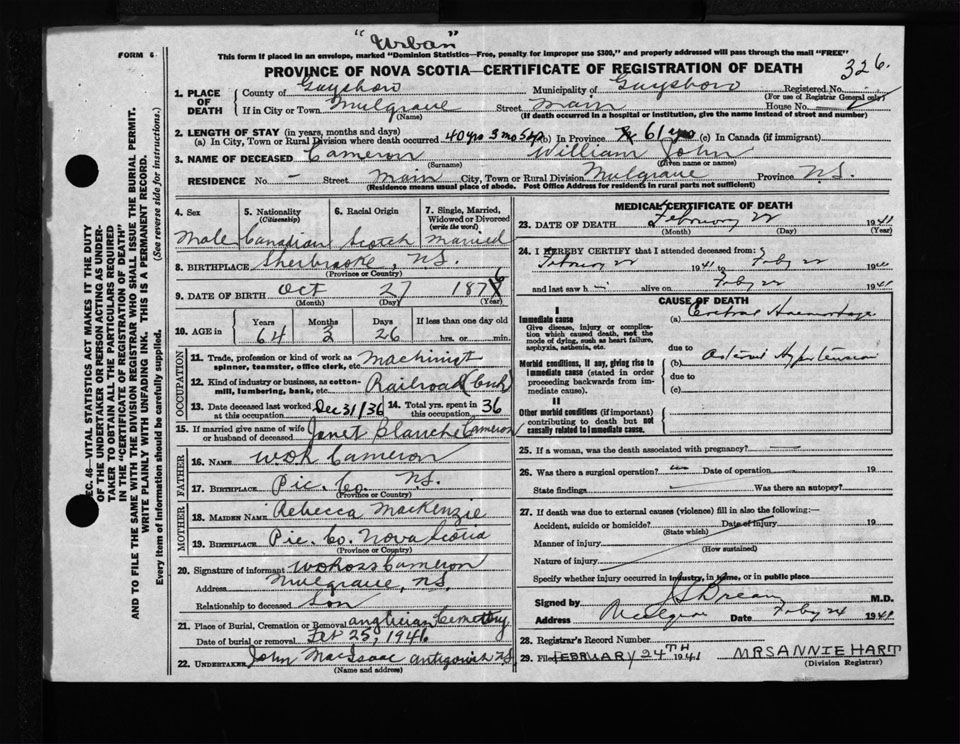 "Urban"
FORM 6
This form if placed in an envelope, marked "Dominion Statistics—Free, penalty for improper use $300," and properly addressed will pass through the mail "FREE"
PROVINCE OF NOVA SCOTIA—CERTIFICATE OF REGISTRATION OF DEATH
326.
1. PLACE OF DEATH
County of Guysboro Municipality of Guysboro Registered No.
(For use of Registrar General only)
If in City or Town Mulgrave Street Main House No.
(Name) (If death occurred in a hospital or institution, give the name instead of street and number)
2. LENGTH OF STAY (in years, months and days)
(a) In City, Town or Rural Division where death occurred 40 yrs 3 mo 5 (b) In Province 61 yrs (c) In Canada (if immigrant)
3. NAME OF DECEASED Cameron William John
(Surname) (Given name or names)
RESIDENCE No. - Street Main City, Town or Rural Division Mulgrave Province N.S.
(Residence means usual place of abode. Post Office Address for residents in rural parts not sufficient)
4. Sex 5. Nationality (Citizenship) 6. Racial Origin 7. Single, Married, Widowed or Divorced (write the word)
Male Canadian Scotch Married
8. BIRTHPLACE Sherbrooke, N.S.
(Province or Country)
9. DATE OF BIRTH Oct 27 187
(Month) (Day) (Year)
10. AGE in Years Months Days If less than one day old
64 3 26 hrs. or min.
OCCUPATION
11. Trade, profession or kind of work as spinner, teamster, office clerk, etc. Machinist
12. Kind of industry or business, as cotton-mill, lumbering, bank, etc. Railroad
13. Date deceased last worked at this occupation Dec 31/36 14. Total yrs. spent in this occupation 36
15. If married give name of wife or husband of deceased Janet Blanche Cameron
FATHER
16. NAME Cameron
17. BIRTHPLACE Pic. Co. N.S.
(Province or Country)
MOTHER
18. MAIDEN NAME Rebecca MacKenzie
19. BIRTHPLACE Pic. Co. Nova Scotia
(Province or Country)
20. Signature of informant Cameron
Address Mulgrave, N.S.
Relationship to deceased Son
21. Place of Burial, Cremation or Removal Cemetery
Date of burial or removal Feb 25, 194
22. UNDERTAKER John MacIsaac Antigonish N.S.
(Name and address)
MEDICAL CERTIFICATE OF DEATH
23. DATE OF DEATH February 22 1941
(Month) (Day) (Year)
24. I HEREBY CERTIFY that I attended deceased from:
February 22 1941 to Feby 22 19
and last saw h alive on Feby 22 1941
CAUSE OF DEATH
I
Immediate cause
Give disease, injury or complication which caused death, not the mode of dying, such as heart failure, asphyxia, asthenia, etc.
(a) Cerebral Haemorrhage
due to
Morbid conditions, if any, giving rise to immediate cause (stated in order proceeding backwards from immediate cause).
(b) Hypertension
due to
(c)
II
Other morbid conditions (if important) contributing to death but not causally related to immediate cause.
25. If a woman, was the death associated with pregnancy?
26. Was there a surgical operation? Date of operation 19
State findings Was there an autopsy?
27. If death was due to external causes (violence) fill in also the following:—
Accident, suicide or homicide? Date of injury 19
(State which)
Manner of injury
(How sustained)
Nature of injury
Specify whether injury occurred in industry, in home, or in public place
Signed by M.D.
Address Mulgrave Date Feby 24 194
28. Registrar's Record Number
29. Filed FEBRUARY 24TH 1941 MRS ANNIE HART
(Division Registrar)
SEC. 46—VITAL STATISTICS ACT MAKES IT THE DUTY
OF THE UNDERTAKER OR PERSON ACTING AS UNDER-
TAKER TO OBTAIN ALL THE PARTICULARS REQUIRED
IN THE "CERTIFICATE OF REGISTRATION OF DEATH"
AND TO FILE THE SAME WITH THE DIVISION REGISTRAR WHO SHALL ISSUE THE BURIAL PERMIT.
WRITE PLAINLY WITH UNFADING INK. THIS IS A PERMANENT RECORD.
Every item of information should be carefully supplied. (See reverse side for instructions.)